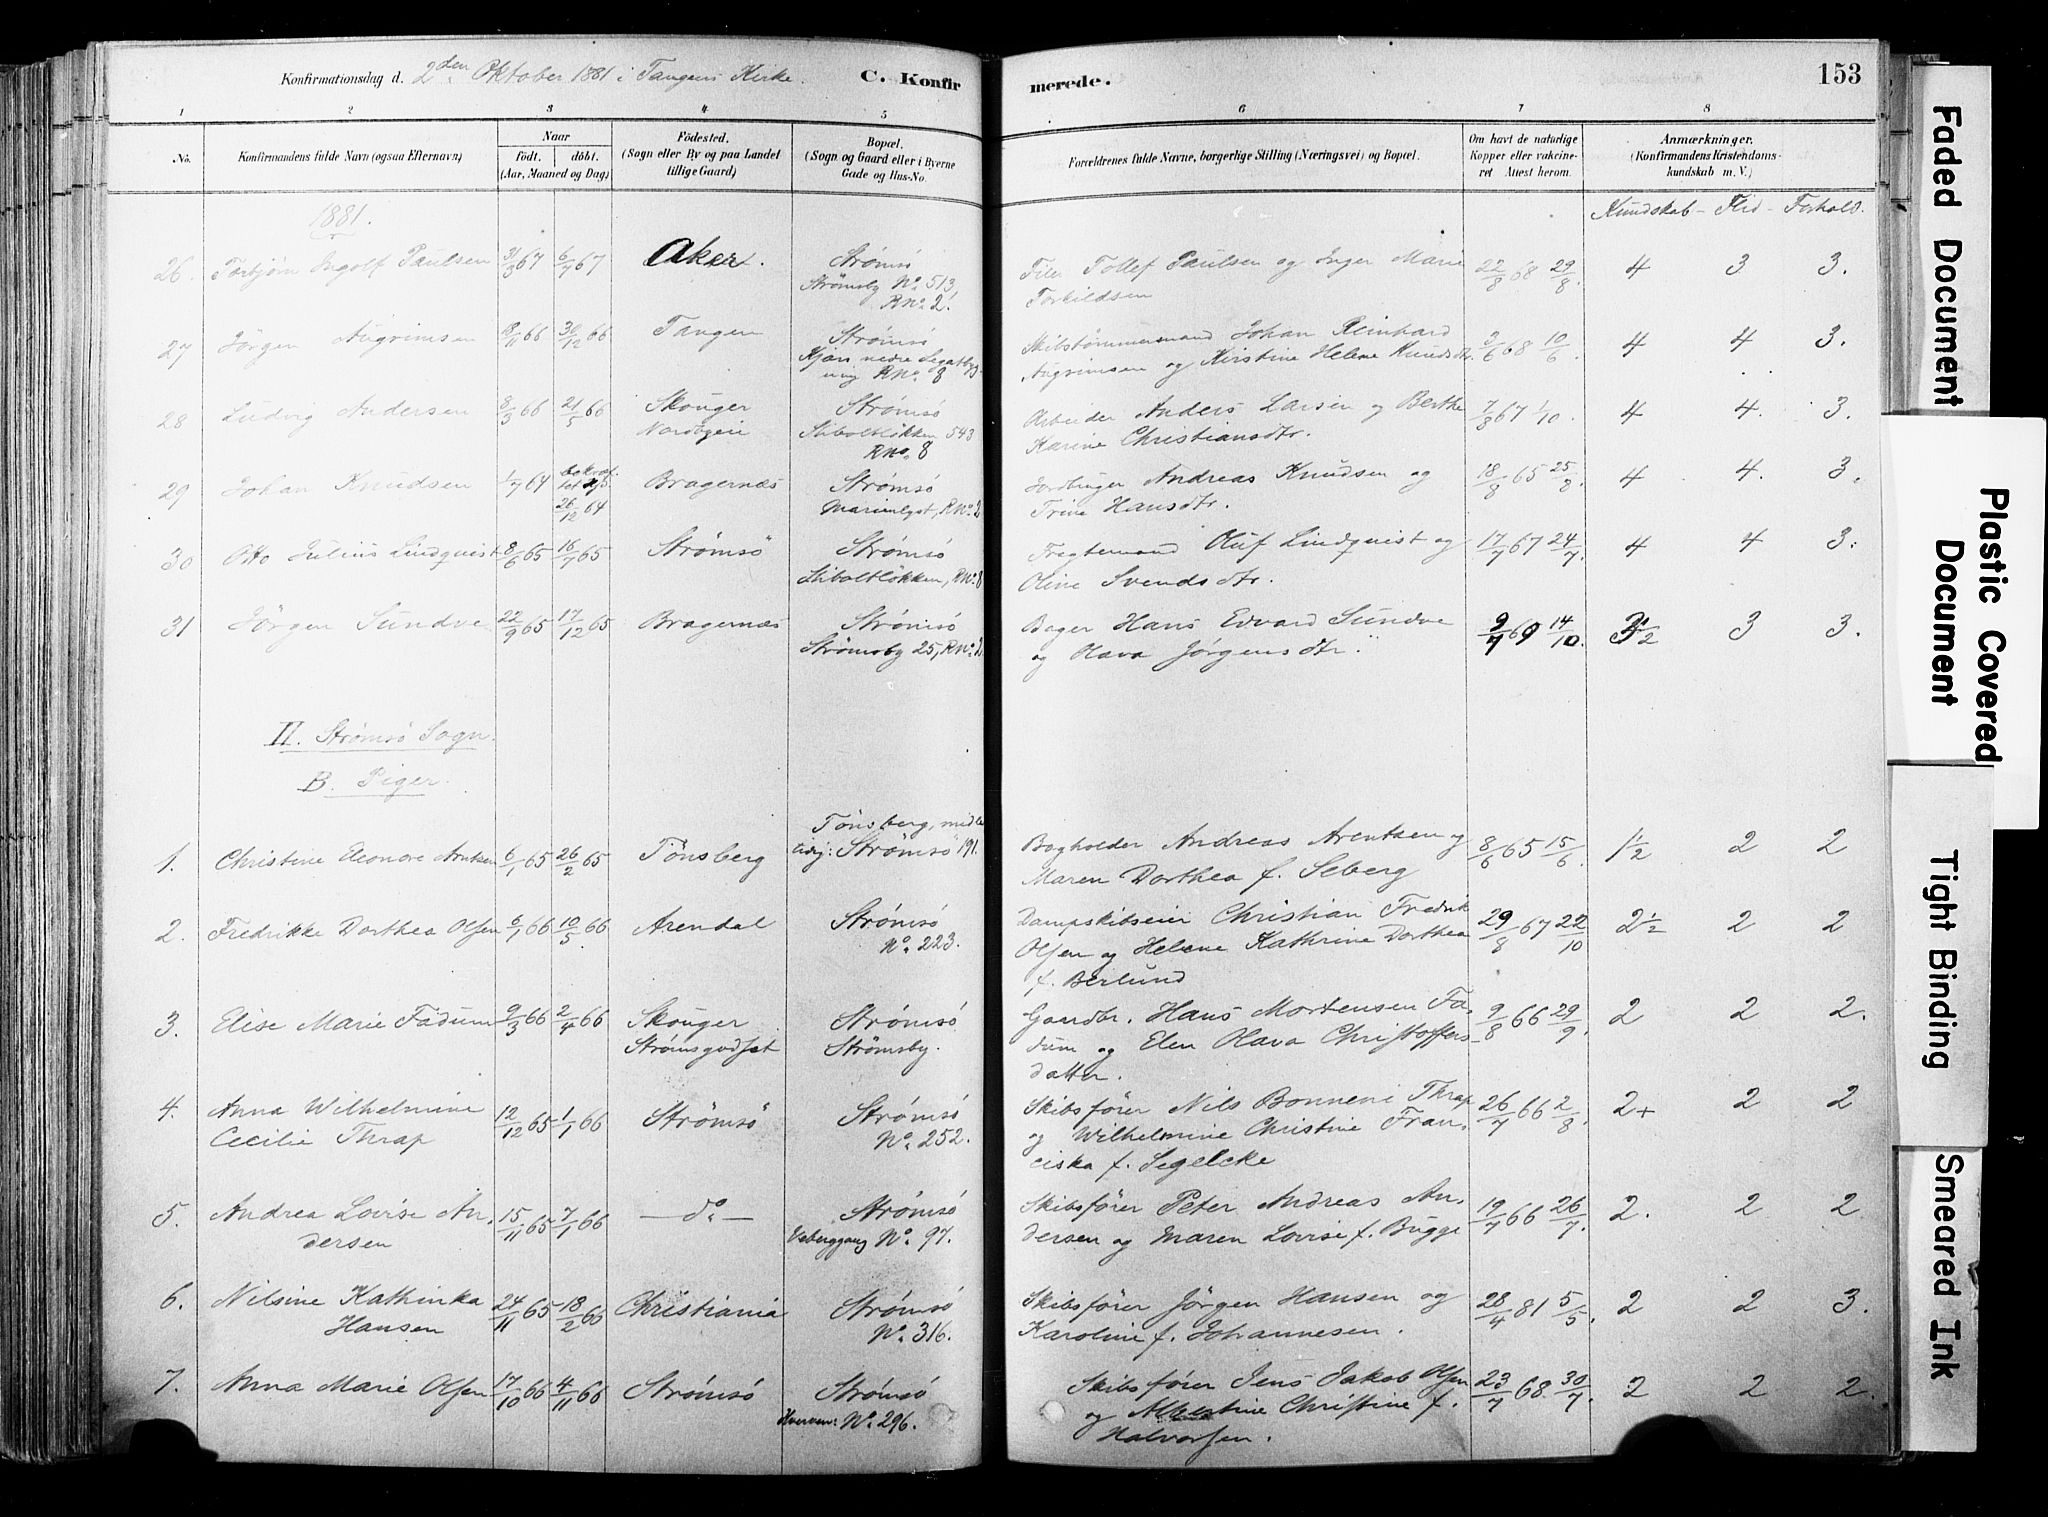 Konfirmationsdag d. 2den Oktober 1881 i Tangens Kirke. C. Konfirmerede. 153
1 2 3 4 5 6 7 8
No. Konfirmandens fulde Navn (ogsaa Efternavn) Naar födt. döbt. (Aar, Maaned og Dag) Födested. (Sogn eller By og paa Landet tillige Gaard) Bopæl. (Sogn og Gaard eller i Byerne Gade og Hus-No. Forældrenes fulde Navne, borgerlige Stilling (Næringsvei) og Bopæl. Om havt de naturlige Kopper eller vakcineret Attest herom. Anmærkninger. (Konfirmandens Kristendomskundskab m. V.)
1881. Kundskab - Flid - Forhold.
26. Torbjørn Ingolf Paulsen 31/3 67 6/7 67 Aker. Strømsö Filer Tollef Paulsen og Inger Marie 22/8 68 29/8. 4 3 3.
Strömsby No. 513, Torkildsen
RNo. 2.
27 Jörgen Angrimsen 8/11 66 30/12 66 Tangen Strømsö Skibstømmermand Johan Reinhard 3/6 68 10/6. 4 4 3.
Kjøs. nedre Angrimsen og Kirstine Helene Knudsdtr.
RNo. 8
28 Ludvig Andersen 8/3 66 21/5 66 Skouger Strømsö Arbeider Anders Larsen og Berthe 7/8 67 1/10. 4 4. 3.
Nordbyeie Stiboltløkken 543 Karine Christiansdtr.
RNo. 8
29 Johan Knudsen 1/7 64 26/12 64 Bragernæs Strømsö Jordbruger Andreas Knudsen og 18/8 65 25/8. 4 4. 3.
Marienlyst, RNo. 2 Trine Hansdtr.
30 Otto Julius Lindquist 8/6 65 16/7 65 Strømsö Strømsö Fragtemand Oluf Lindquist og 17/7 67 24/7. 4 4 3.
Stiboltlökken, RNo. 8 Oline Svendsdtr.
31 Jörgen Sundve 22/9 65 17/12 65 Bragernæs Strømsö Bager Hans Edvard Sundve 9/7 69 14/10. 3 3.
Strömsby 25, RNo. 2. og Olava Jørgensdtr.
II. Strømsö Sogn.
B. Piger.
Tönsberg, midler
1. Christine Eleonore Arntsen 6/1 65 26/2 65 Tönsberg tidig: Strømsö 191. Bogholder Andreas Arentsen og 8/6 65 15/6. 1½ 2 2
Maren Dorthea f. Seberg
2. Fredrikke Dorthea Olsen 6/1 66 10/5 66 Arendal Strømsö Dampskibseier Christian Fredrik 29/8 67 22/10 2½ 2 2
No. 223. Olsen og Helene Kathrine Dorthea
f. Berlund
3. Elise Marie Fadum 9/3 66 2/4 66 Skouger Strømsö Gaardbr. Hans Mortensen Fa- 9/8 66 29/9. 2 2 2.
Strømsgodset Strömsby. dum og Elen Olava Christoffers-
datter.
4. Anna Wilhelmine 12/12 65 1/1 66 Strømsö Strømsö Skibsfører Nils Bonneni Thrap 26/7 66 2/8. 2+ 2 2
Cecilie Thrap No. 252. og Wilhelmine Christine Fran-
ciska f. Segelcke
5. Andrea Lovise An- 15/11 65 7/1 66 — do — Strømsö Skibsfører Peter Andreas An- 19/7 66 26/7. 2. 2 2
dersen No. 97. dersen og Maren Lovise f. Bugge
6. Nilsine Kathinka 24/11 65 18/2 66 Christiania Strømsö Skibsfører Jörgen Hansen og 28/4 81 5/5. 2 2 3.
Hansen No. 316. Karoline f. Johannesen.
7. Anna Marie Olsen 17/10 66 4/11 66 Strømsö Strømsö Skibsfører Jens Jakob Olsen 23/7 68. 30/7. 2 2 2.
No. 296. og Albertine Christine f.
Halvorsen.
Faded Document
Plastic Covered Document
Tight Binding
Smeared Ink